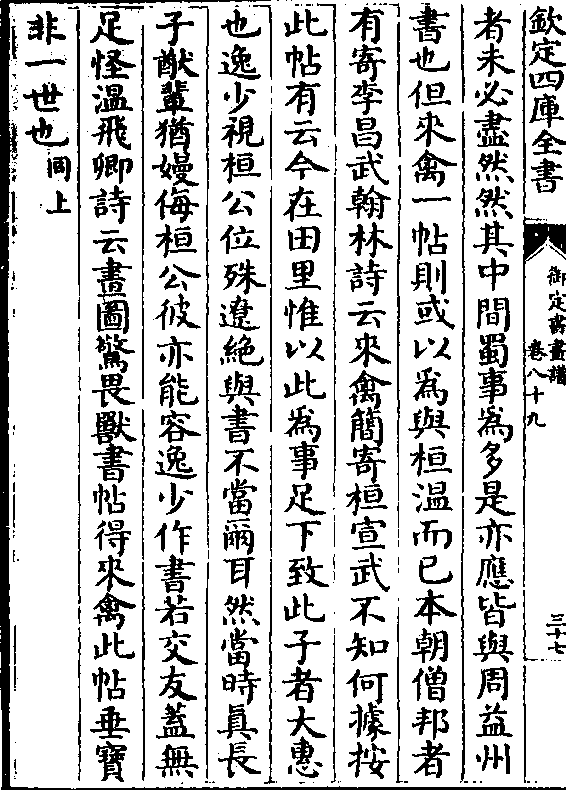 欽定四庫全書
御定書畫譜
卷八十九
三十七
者未必盡然然其中間蜀事為多是亦應皆與周益州
書也但來禽一帖則或以為與桓溫而已本朝僧邦者
有寄李昌武翰林詩云來禽簡寄桓宣武不知何據按
此帖有云今在田里惟以此為事足下致此子者大惠
也逸少視桓公位殊遼絶與書不當爾耳然當時真長
子猷輩猶嫚侮桓公彼亦能容逸少作書若交友蓋無
足怪溫飛卿詩云畫圖驚畏獸書帖得來禽此帖垂寶
非一世也同上